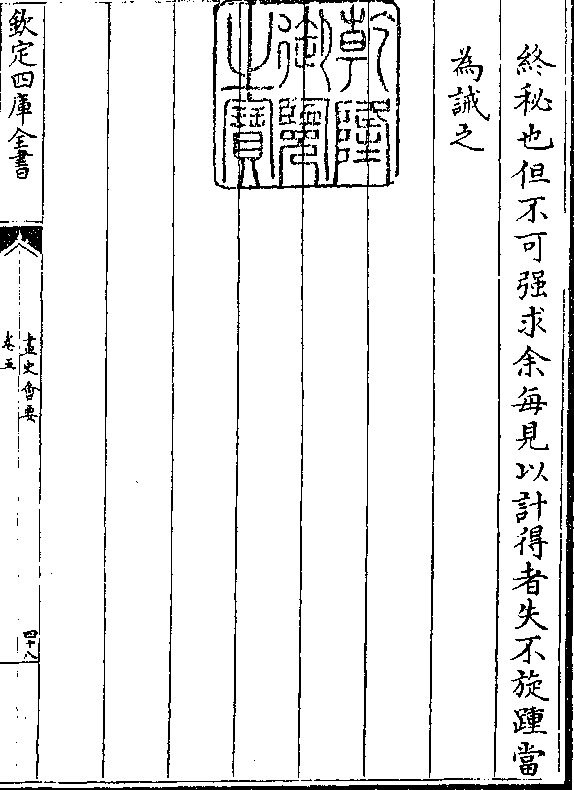 終秘也但不可强求余每見以計得者失不旋踵當
為誡之
乾隆
御覽
之寶
欽定四庫全書
畫史會要
卷五
四十八